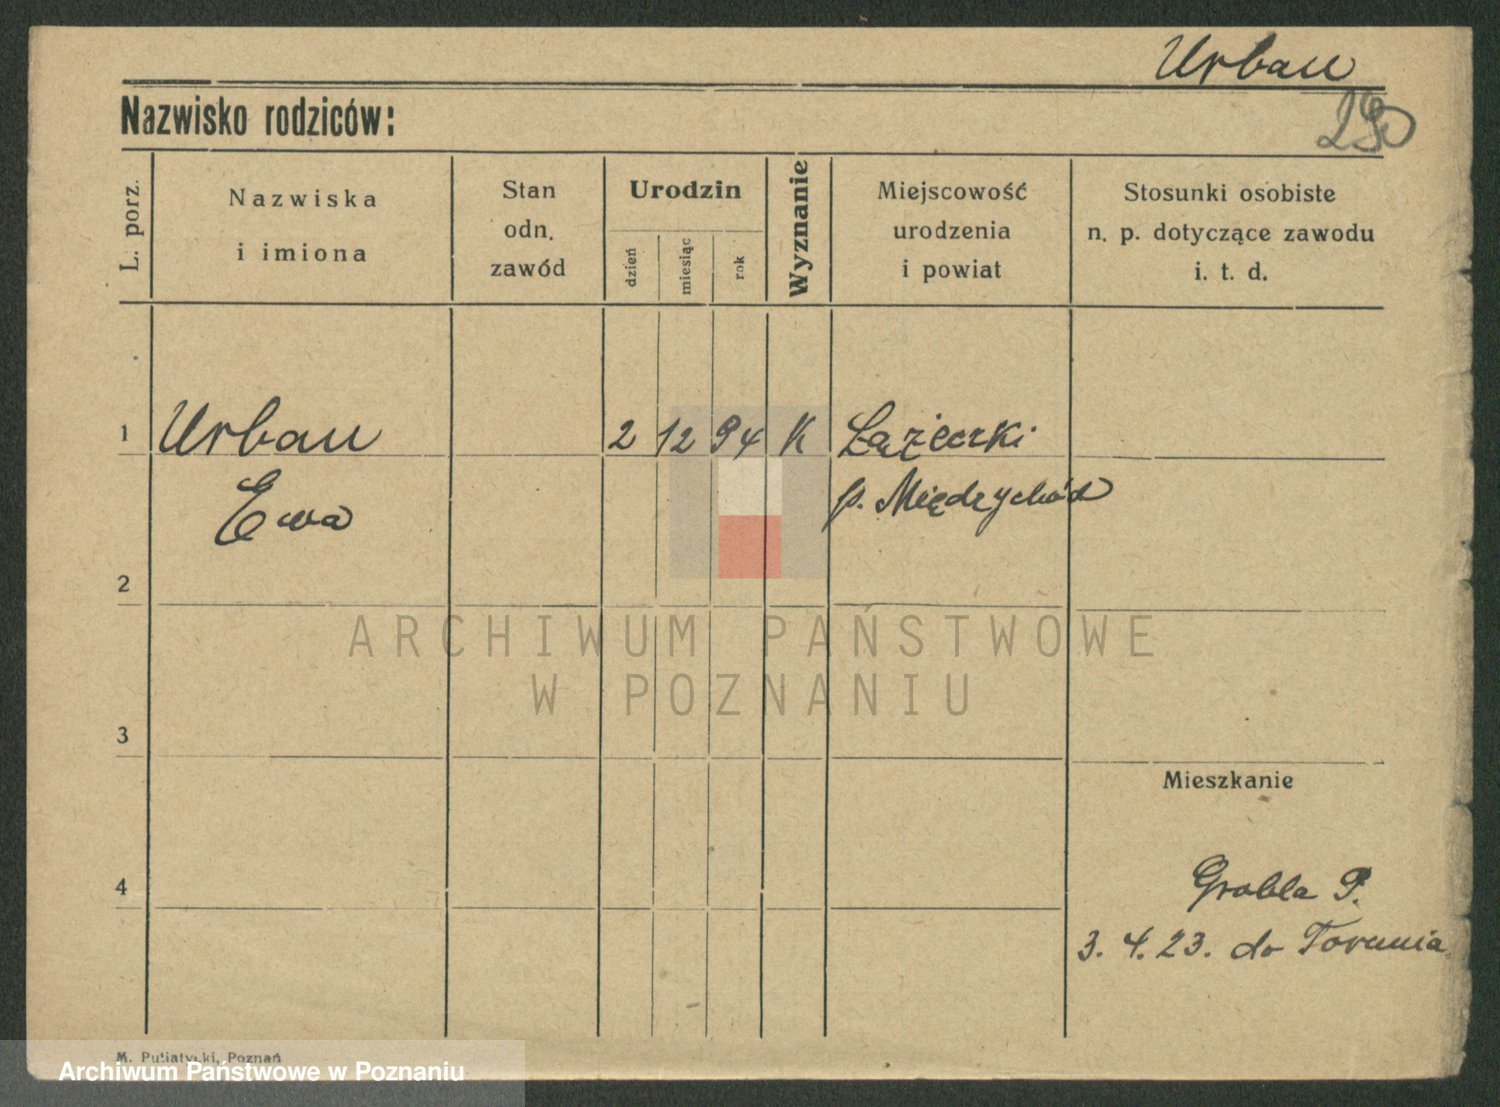 Urban
290
Nazwisko rodziców:
L. porz.
Nazwiska
i imiona
Stan
odn.
zawód
Urodzin
dzień
miesiąc
rok
Wyznanie
Miejscowość
urodzenia
i powiat
Stosunki osobiste
n. p. dotyczące zawodu
i. t. d.
1 Urban 2 12 94 K Łążeczki
Ewa p. Międzychód
2
ARCHIWUM PAŃSTWOWE
W POZNANIU
3
Mieszkanie
4 Grobla P.
3. 4. 23. do Torunia
M. Putiatycki, Poznań
Archiwum Państwowe w Poznaniu